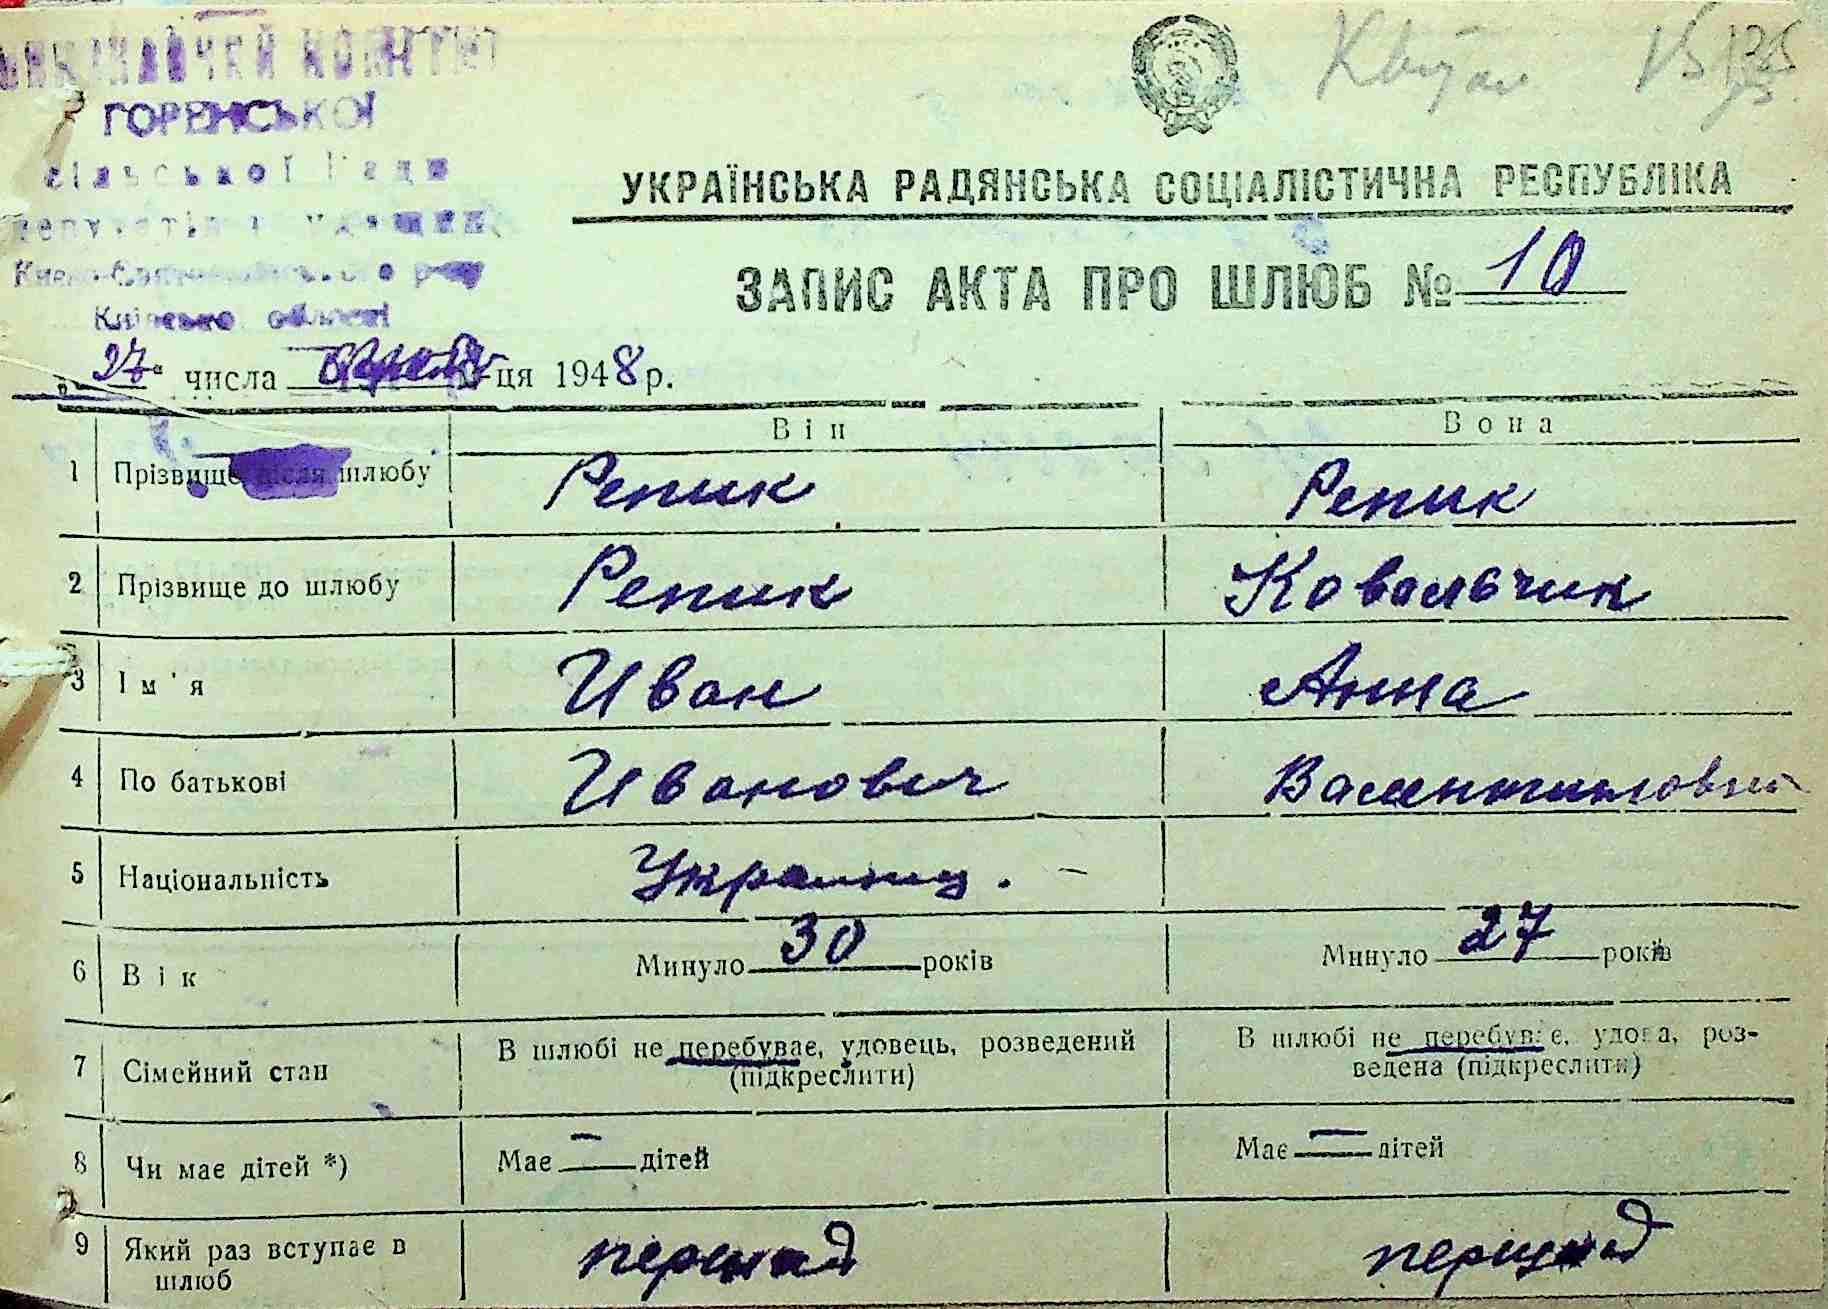 ВИКОНАВЧИЙ КОМІТЕТ
ГОРЕНСЬКОЇ
сільської Ради
депутатів трудящих
Києво-Святошинського р-ну
Київської області
УКРАЇНСЬКА РАДЯНСЬКА СОЦІАЛІСТИЧНА РЕСПУБЛІКА
ЗАПИС АКТА ПРО ШЛЮБ № 10
„27“ числа ця 1948 р.
Він Вона
1 Прізвище після шлюбу Репик Репик
2 Прізвище до шлюбу Репик Ковальчик
3 Ім'я Иван Анна
4 По батькові Иванович Валентиновна
5 Національність Украинец. -
6 Вік Минуло 30 років Минуло 27 років
7 Сімейний стан В шлюбі не перебуває, удовець, розведений (підкреслити) В шлюбі не перебуває, удова, роз-
ведена (підкреслити)
8 Чи має дітей *) Має — дітей Має — дітей
9 Який раз вступає в
шлюб